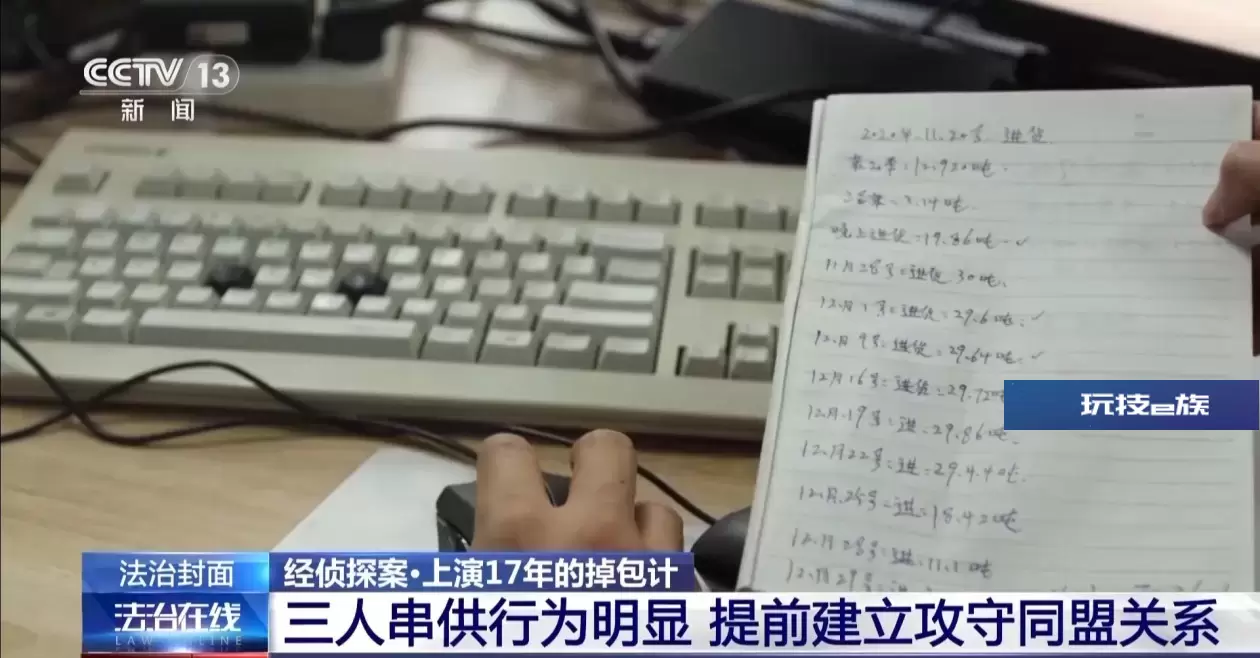 CCTV 13
新闻
2020年.11.20号 进货
晚上进货:19.86吨 ✓
11月28号:进货 30吨.
12月1号:进货:29.6吨. ✓
12月9号:进货:29.64吨. ✓
12月16号:进货:29.72吨
玩技e族
12月.19号:进:29.86吨.
12月22号:进:29.4.4吨.
12月.25号:进:18.42吨
12月28号:进:11.1吨
12月29号:进
法治封面
经侦探案·上演17年的掉包计
法治在线
LAW ONLINE
三人串供行为明显 提前建立攻守同盟关系